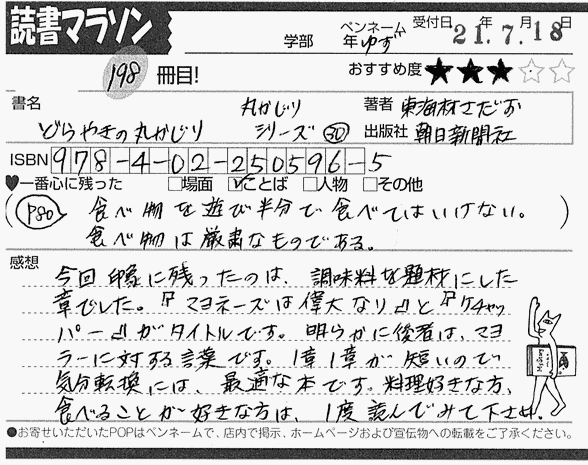 読書マラソン
学部 年 ペンネーム ゆず 受付日 21年7月18日
198 冊目! おすすめ度 ★★★☆☆
書名 どらやきの丸かじり 丸かじりシリーズ㉚ 著者 東海林さだお
出版社 朝日新聞社
ISBN 978-4-02-250596-5
♥一番心に残った □場面 ☑ことば □人物 □その他
(P80 食べ物を遊び半分で食べてはいけない。
食べ物は厳粛なものである。)
感想
今回印象に残ったのは、調味料を題材にした
章でした。『マヨネーズは偉大なり』と『ケチャッ
パー』がタイトルです。明らかに後者は、マヨ
ラーに対する言葉です。1章1章が短いので
気分転換には、最適な本です。料理好きな方、
食べることが好きな方は、1度読んでみて下さい。
●お寄せいただいたPOPはペンネームで、店内で掲示、ホームページおよび宣伝物への転載をご了承ください。